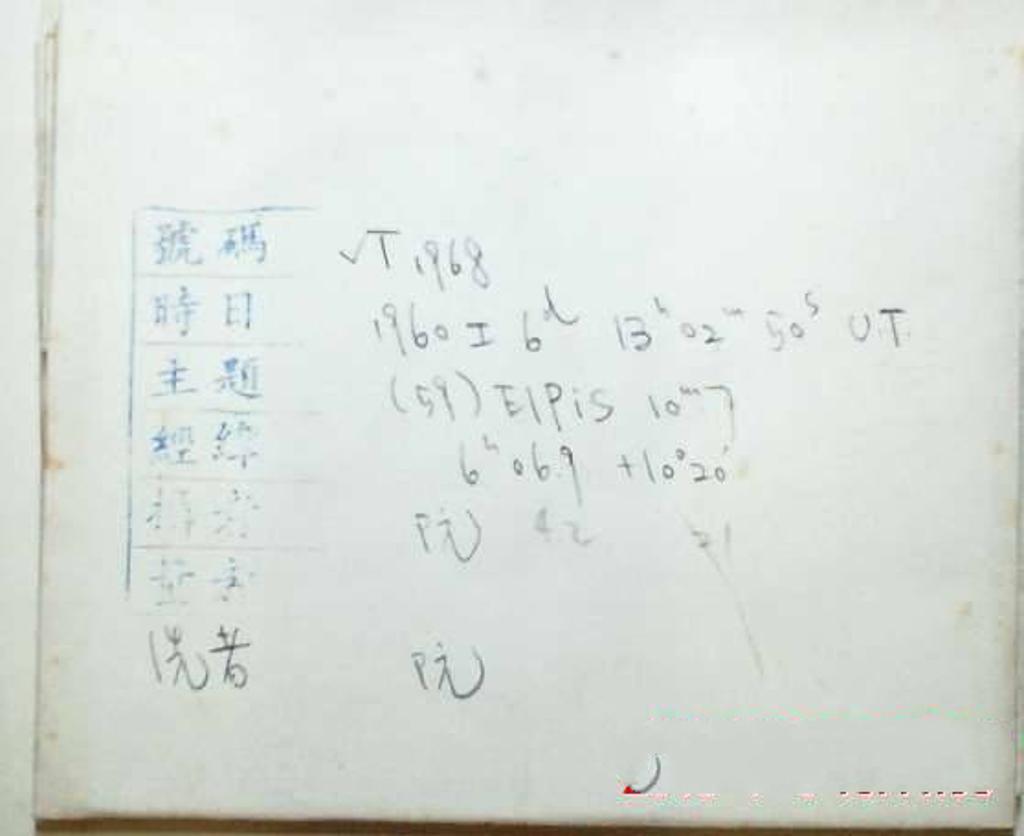 號碼 √T 1968
時日 1960 I 6d 13h 02m 50s UT
主題 (59) Elpis 10m7
經緯 6h 06.9 +10°20'
阮
洗者 阮